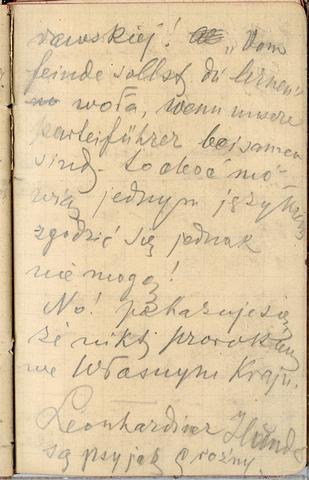 rawskiej! „Vom
feinde sollst du lernen"
woła, wenn unsere
Parteiführer beisamen
sind. to choć mó-
wią jednym językiem
zgodzić się jednak
nie mogą!
No! pokazuje się
że nikt prorokiem
we własnym Kraju.
Leonhardiner Hunde
są psy jak groźny.